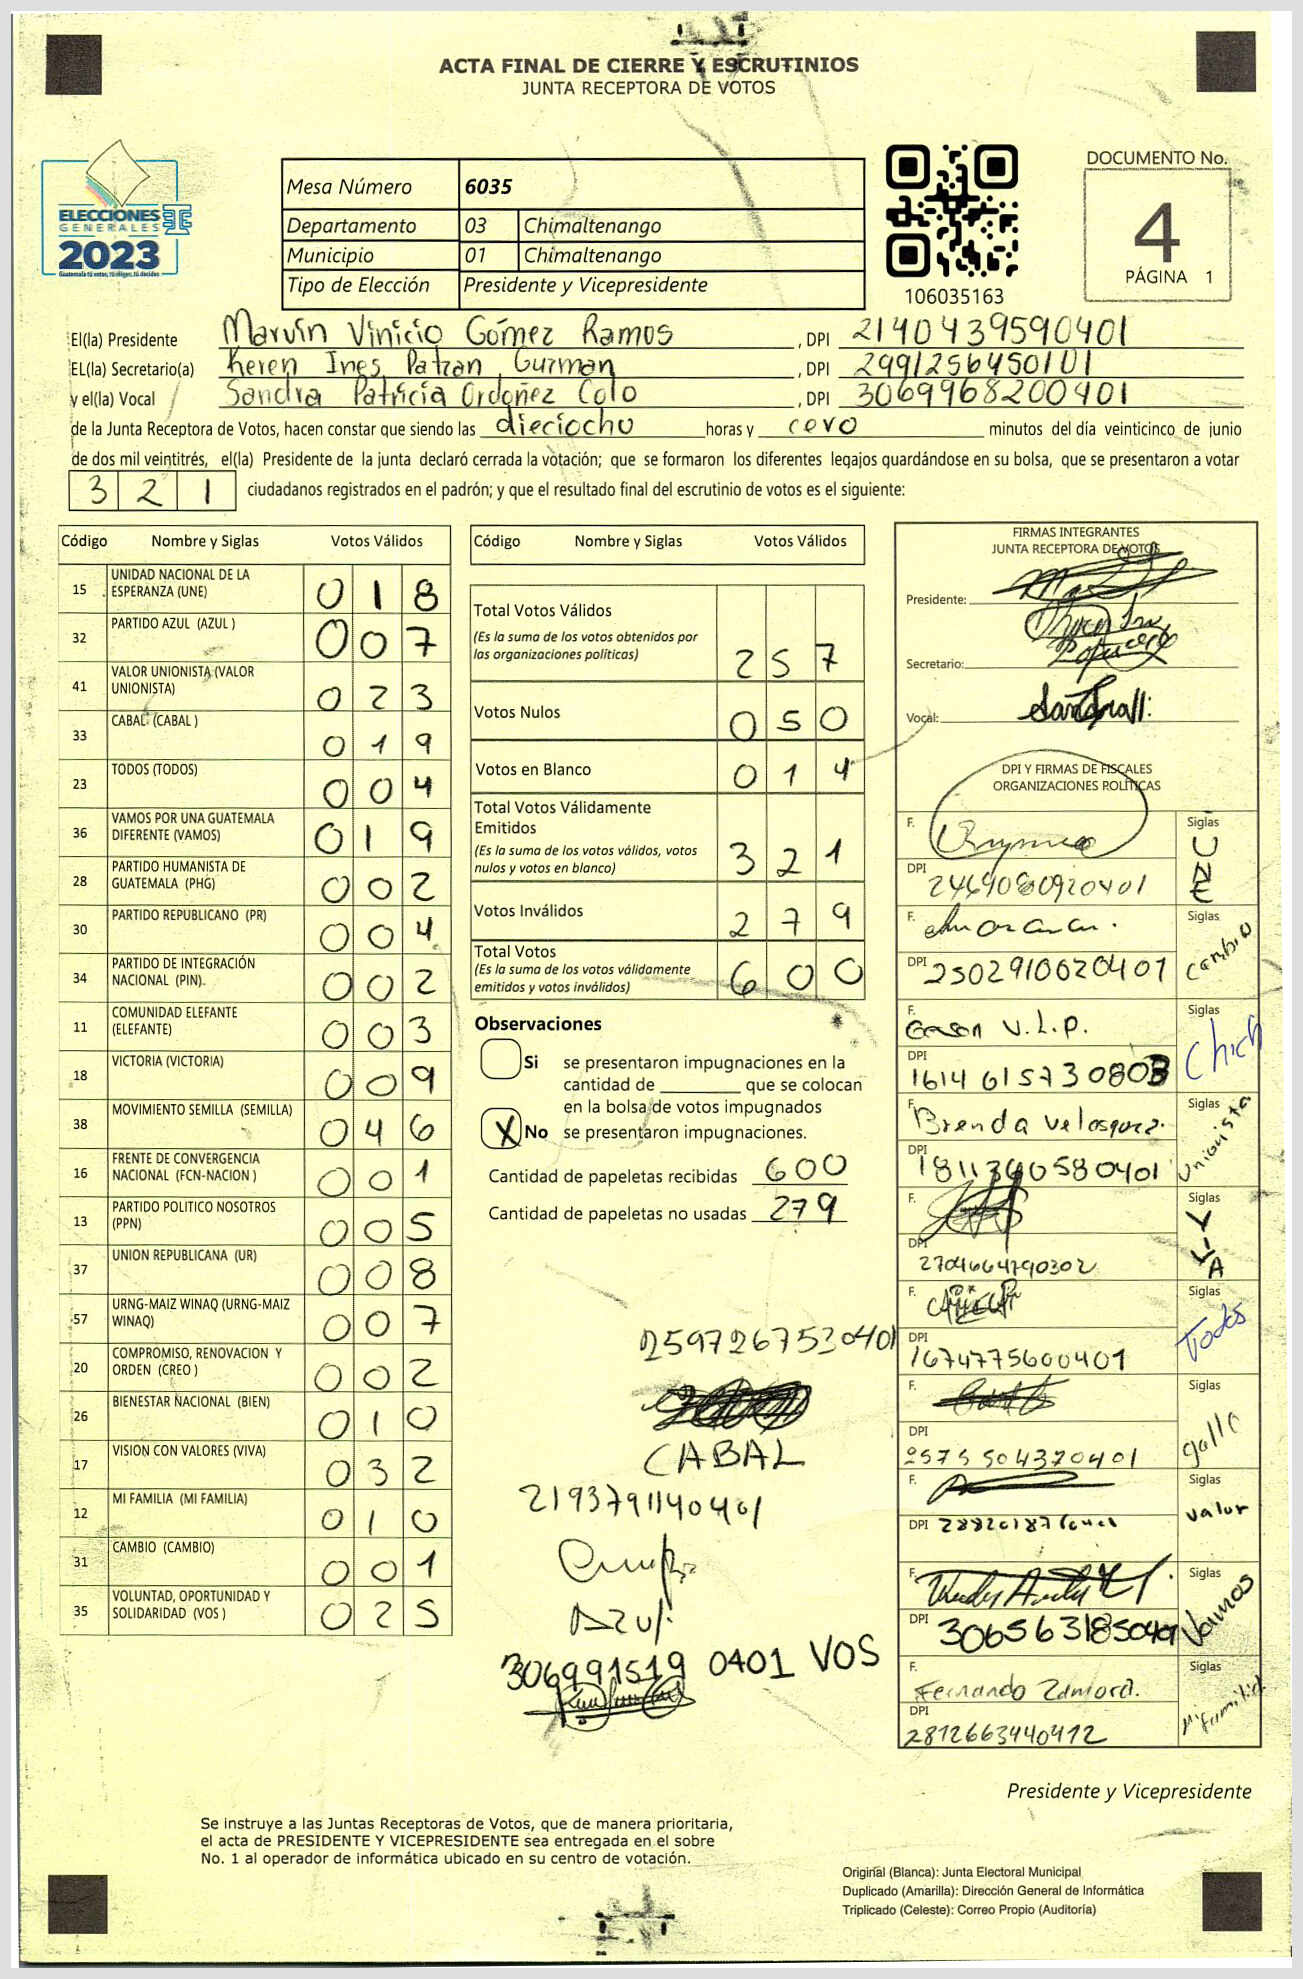 ACTA FINAL DE CIERRE Y ESCRUTINIOS
JUNTA RECEPTORA DE VOTOS
ELECCIONES
GENERALES
2023
Guatemala tú votas, tú eliges, tú decides
Mesa Número 6035
Departamento 03 Chimaltenango
Municipio 01 Chimaltenango
Tipo de Elección Presidente y Vicepresidente
106035163
DOCUMENTO No.
4
PÁGINA 1
El(la) Presidente Marvin Vinicio Gómez Ramos, DPI 2140439590401
EL(la) Secretario(a) Keren Ines Patzan Guzman, DPI 2991256450101
y el(la) Vocal Sandra Patricia Ordoñez Colo, DPI 3069968200401
de la Junta Receptora de Votos, hacen constar que siendo las dieciocho horas y cero minutos del día veinticinco de junio
de dos mil veintitrés, el(la) Presidente de la junta declaró cerrada la votación; que se formaron los diferentes legajos guardándose en su bolsa, que se presentaron a votar
3 2 1 ciudadanos registrados en el padrón; y que el resultado final del escrutinio de votos es el siguiente:
Código Nombre y Siglas Votos Válidos
15 UNIDAD NACIONAL DE LA ESPERANZA (UNE) 0 1 8
32 PARTIDO AZUL (AZUL ) 0 0 7
41 VALOR UNIONISTA (VALOR UNIONISTA) 0 2 3
33 CABAL (CABAL ) 0 1 9
23 TODOS (TODOS) 0 0 4
36 VAMOS POR UNA GUATEMALA DIFERENTE (VAMOS) 0 1 9
28 PARTIDO HUMANISTA DE GUATEMALA (PHG) 0 0 2
30 PARTIDO REPUBLICANO (PR) 0 0 4
34 PARTIDO DE INTEGRACIÓN NACIONAL (PIN) 0 0 2
11 COMUNIDAD ELEFANTE (ELEFANTE) 0 0 3
18 VICTORIA (VICTORIA) 0 0 9
38 MOVIMIENTO SEMILLA (SEMILLA) 0 4 6
16 FRENTE DE CONVERGENCIA NACIONAL (FCN-NACION ) 0 0 1
13 PARTIDO POLITICO NOSOTROS (PPN) 0 0 5
37 UNION REPUBLICANA (UR) 0 0 8
57 URNG-MAIZ WINAQ (URNG-MAIZ WINAQ) 0 0 7
20 COMPROMISO, RENOVACION Y ORDEN (CREO ) 0 0 2
26 BIENESTAR NACIONAL (BIEN) 0 1 0
17 VISION CON VALORES (VIVA) 0 3 2
12 MI FAMILIA (MI FAMILIA) 0 1 0
31 CAMBIO (CAMBIO) 0 0 1
35 VOLUNTAD, OPORTUNIDAD Y SOLIDARIDAD (VOS ) 0 2 5
Código Nombre y Siglas Votos Válidos
Total Votos Válidos
(Es la suma de los votos obtenidos por
las organizaciones políticas) 2 5 7
Votos Nulos 0 5 0
Votos en Blanco 0 1 4
Total Votos Válidamente
Emitidos
(Es la suma de los votos válidos, votos
nulos y votos en blanco) 3 2 1
Votos Inválidos 2 7 9
Total Votos
(Es la suma de los votos válidamente
emitidos y votos inválidos) 6 0 0
Observaciones
Si se presentaron impugnaciones en la
cantidad de ________ que se colocan
en la bolsa de votos impugnados
X No se presentaron impugnaciones.
Cantidad de papeletas recibidas 600
Cantidad de papeletas no usadas 279
2597267530401
CABAL
2193791140401
Azul
306991519 0401 VOS
FIRMAS INTEGRANTES
JUNTA RECEPTORA DE VOTOS
Presidente:
Secretario:
Vocal:
DPI Y FIRMAS DE FISCALES
ORGANIZACIONES POLÍTICAS
F. Siglas UNE
DPI 2469080920401
F. Siglas Cambio
DPI 2502910620401
F. Gerson V.L.P. Siglas
DPI 1614615730803
F. Brenda Velasquez. Siglas Unionista
DPI 1811390580401
F. Siglas
DPI 2704664790302
F. Siglas Todos
DPI 1674775600401
F. Siglas gallo
DPI 2575504370401
F. Siglas Valor
DPI
F. Siglas Vamos
DPI
F. Fernando Zamora. Siglas Mi familia
DPI 2812663440412
Presidente y Vicepresidente
Se instruye a las Juntas Receptoras de Votos, que de manera prioritaria,
el acta de PRESIDENTE Y VICEPRESIDENTE sea entregada en el sobre
No. 1 al operador de informática ubicado en su centro de votación.
Original (Blanca): Junta Electoral Municipal
Duplicado (Amarilla): Dirección General de Informática
Triplicado (Celeste): Correo Propio (Auditoría)